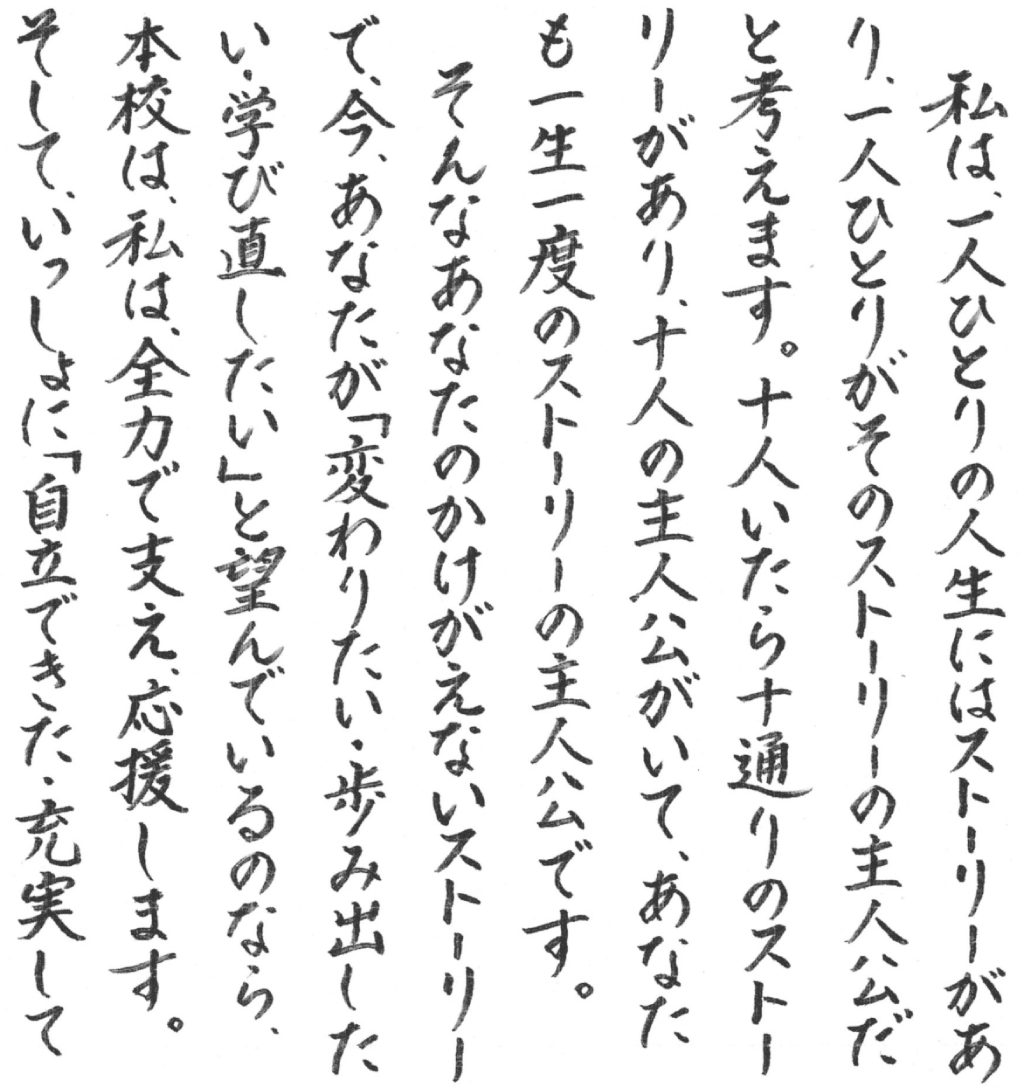 私は、一人ひとりの人生にはストーリーがあ
り、一人ひとりがそのストーリーの主人公だ
と考えます。十人いたら十通りのストー
リーがあり、十人の主人公がいて、あなた
も一生一度のストーリーの主人公です。
そんなあなたのかけがえないストーリー
で、今、あなたが「変わりたい・歩み出した
い・学び直したい」と望んでいるのなら、
本校は、私は、全力で支え、応援します。
そして、いっしょに「自立できた・充実して